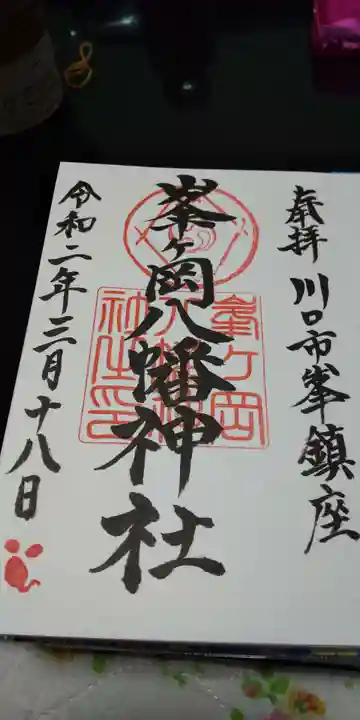 奉拝 川口市峯鎮座
峯ヶ岡八幡神社
峯ヶ岡八幡神社印
令和二年三月十八日